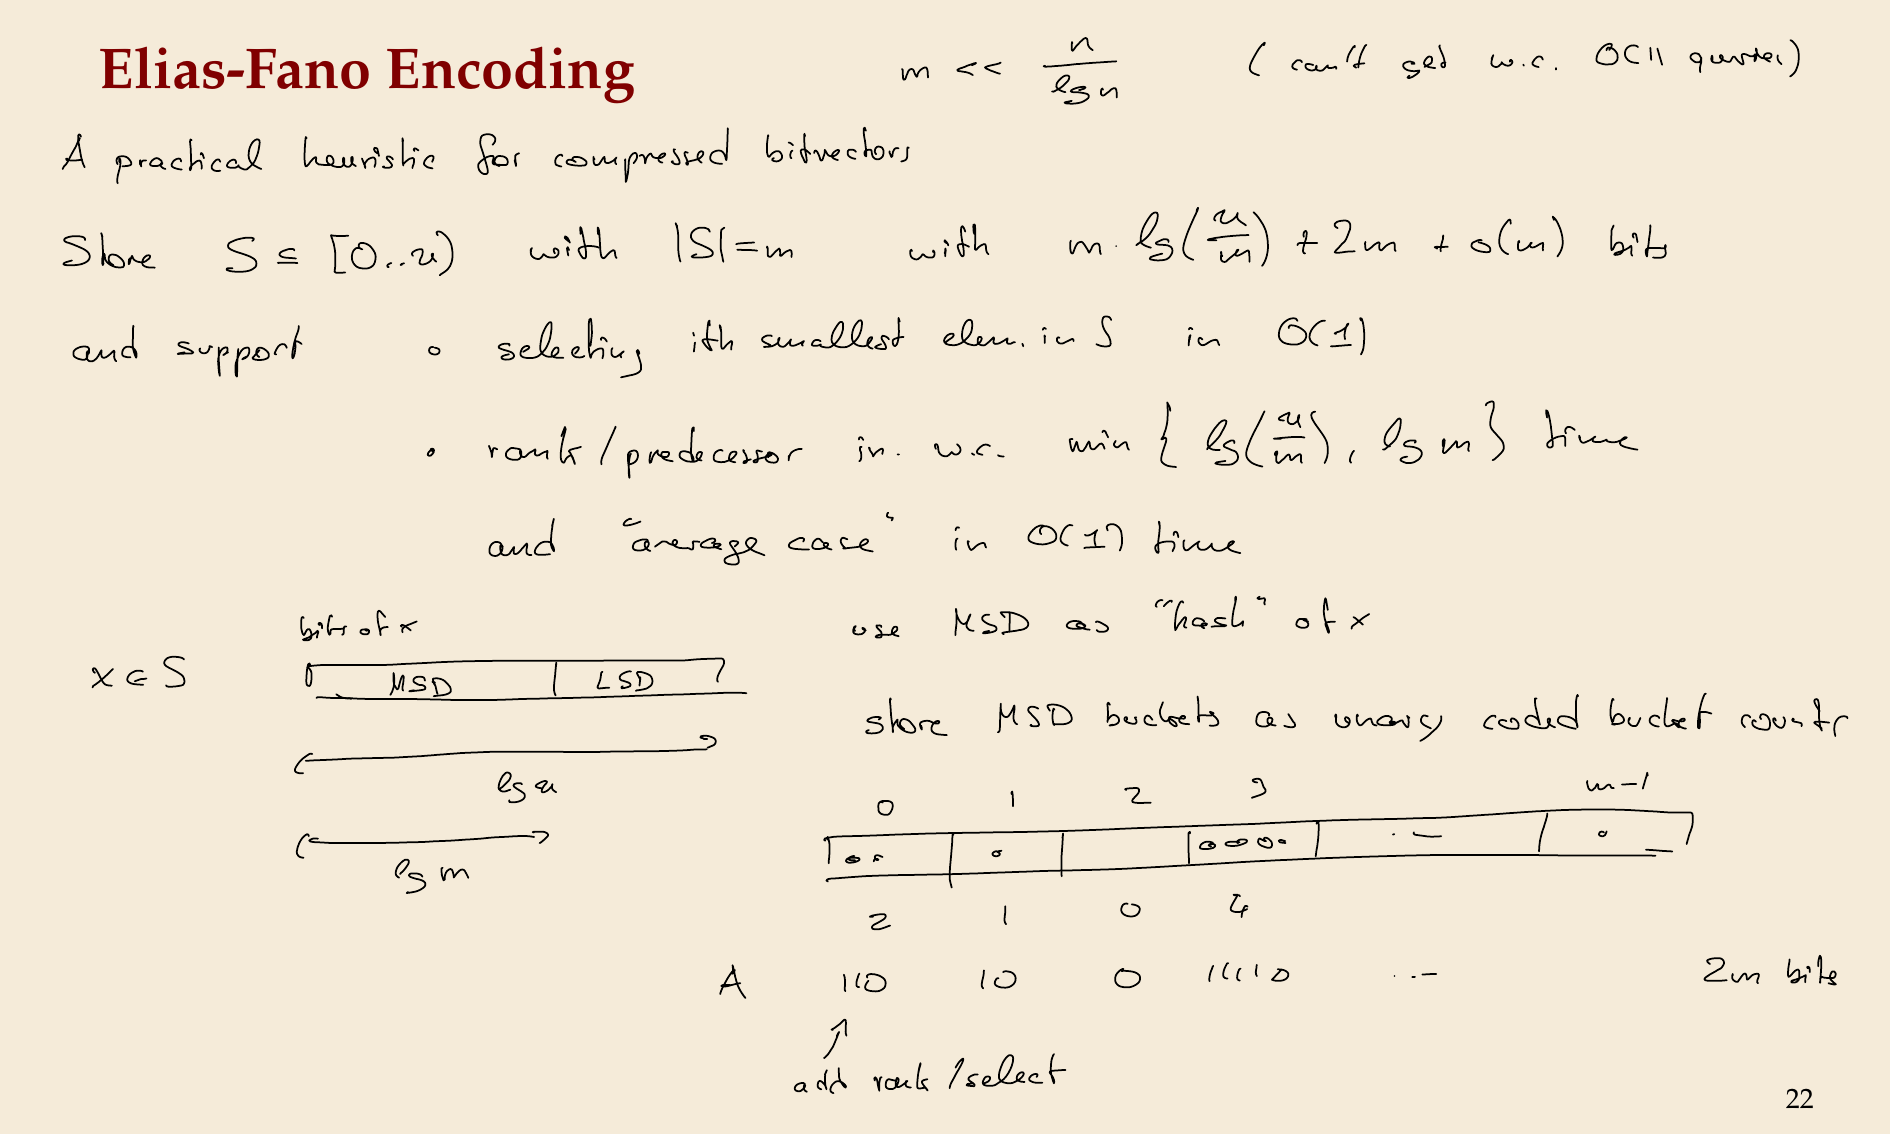 Elias-Fano Encoding
m << n / lg n (can't get w.c. O(1) queries)
A practical heuristic for compressed bitvectors
Store S ⊆ [0..u) with |S|=m with m · lg(u/m) + 2m + o(m) bits
and support • selecting ith smallest elem. in S in O(1)
• rank/predecessor in w.c. min { lg(u/m), lg m} time
and "average case" in O(1) time
bits of x
use MSD as "hash" of x
x ∈ S MSD LSD
store MSD buckets as unary coded bucket counts
lg u
0 1 2 3 m-1
lg m
2 1 0 4
A 110 10 0 11110 ... 2m bits
add rank/select
22